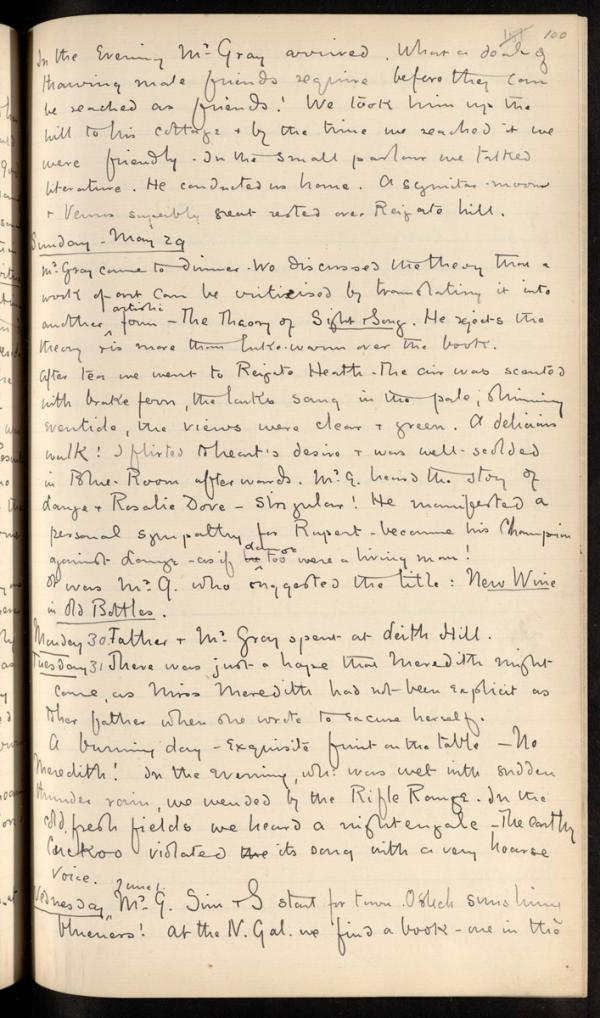 100
In the Evening Mr. Gray arrived. What a deal of
thawing male friends require before they can
be reached as friends! We took him up the
hill to his cottage + by the time we reached it we
were friendly. In the small parlour we talked
literature. He conducted us home. A scimitar-moon
+ Venus superbly great rested over Reigate hill.
Sunday - May 29
Mr. Gray came to dinner. We discussed the theory that a
work of art can be criticised by translating it into
another artistic form - The Theory of Sight + Song. He rejects the
theory + is more than luke-warm over the book.
After tea we went to Reigate Heath - The air was scented
with brake fern, the larks sang in the pale, shinning
eventide, the views were clear + green. A delicious
walk! I flirted to heart's desire + was well-scolded
in Blue-Room afterwards. Mr. G. heard the story of
+ Rosalie Dove - Singular! He manifested a
personal sympathy for Rupert - became his Champion
against - as if too were a living man!
It was Mr. G. who suggested the title: New Wine
in Old Bottles.
Monday 30 Father + Mr. Gray spent at Leith Hill.
Tuesday 31 There was just a hope that Meredith might
come, as Miss Meredith had not been explicit as
to her father when she wrote to excuse herself.
A burning day - Exquisite fruit on the table - No
Meredith! In the evening, wh: was wet with sudden
thunder rain, we wended by the Rifle Range. In the
cold, fresh fields we heard a nightengale - The earthy
Cuckoo violated the its song with a very hoarse
voice.
Wednesday June 1. Mr. G. Sim + I start for town. O such sunshiny
blueness! At the N. Gal. we find a book - one in the